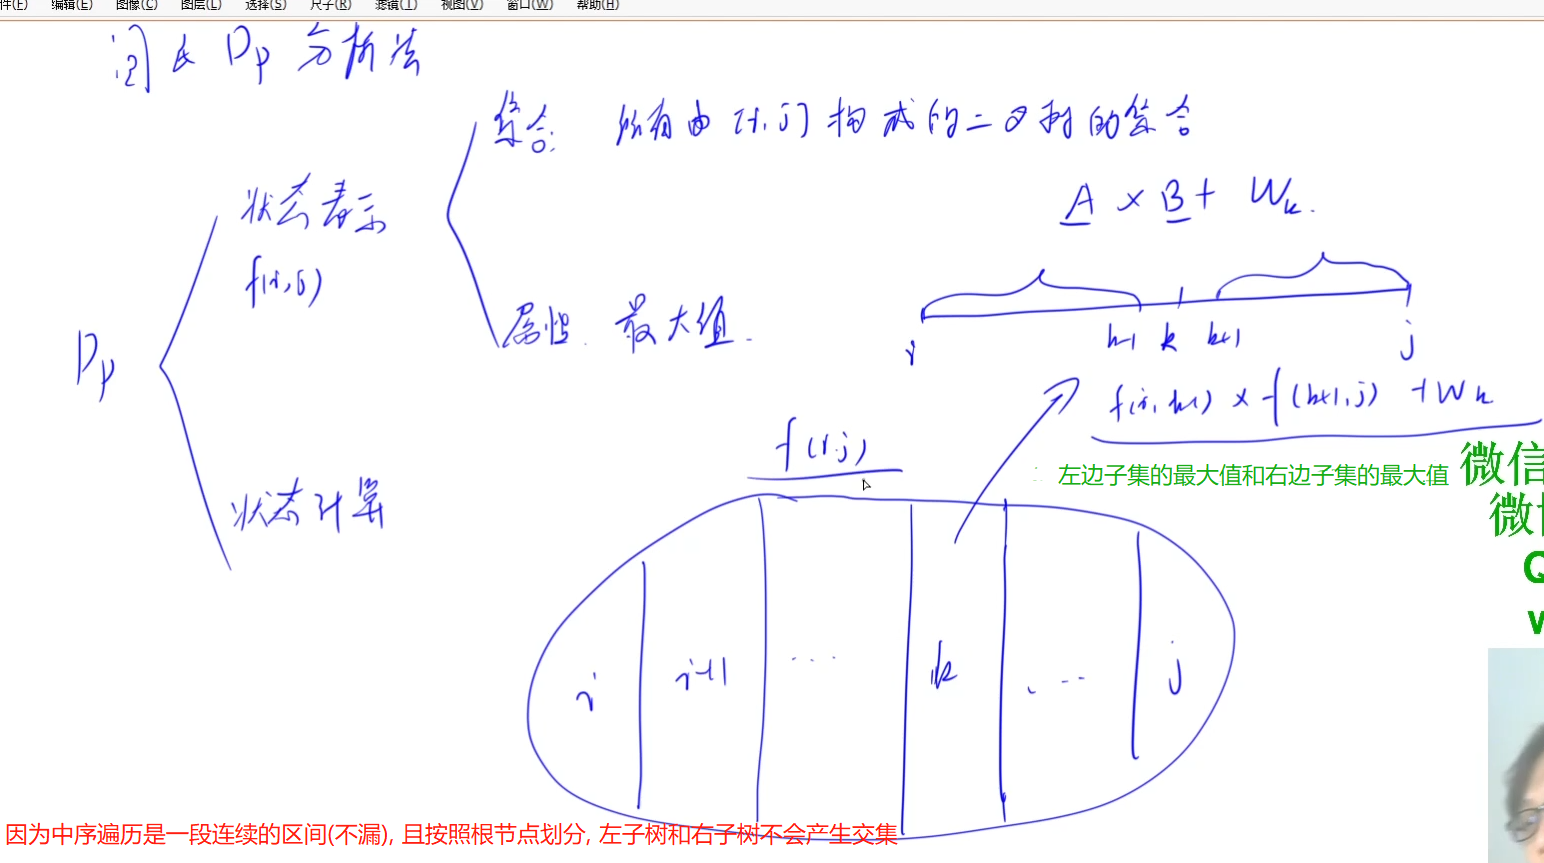 件(F) 编辑(E) 图像(C) 图层(L) 选择(S) 尺子(R) 滤镜(T) 视图(V) 窗口(W) 帮助(H)
闫氏DP分析法
集合: 所有由[i,j]构成的二叉树的集合
A × B + Wk.
状态表示
f(i,j)
属性. 最大值.
i k-1 k k+1 j
DP
f(i,k-1) × f(k+1,j) + Wk
f(i,j)
左边子集的最大值和右边子集的最大值
微信
微博
Q
状态计算
i i+1 ... k ... j
因为中序遍历是一段连续的区间(不漏), 且按照根节点划分, 左子树和右子树不会产生交集